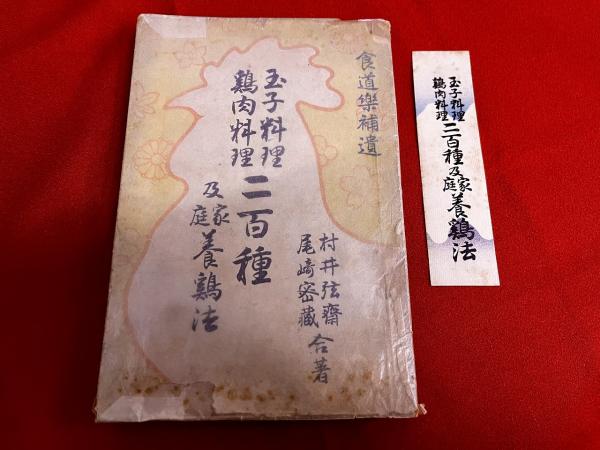 食道樂補遺
玉子料理
鶏肉料理
二百種
及家庭養鶏法
村井弦齋
尾崎密藏
合著
玉子料理
鶏肉料理
二百種及家庭養鶏法